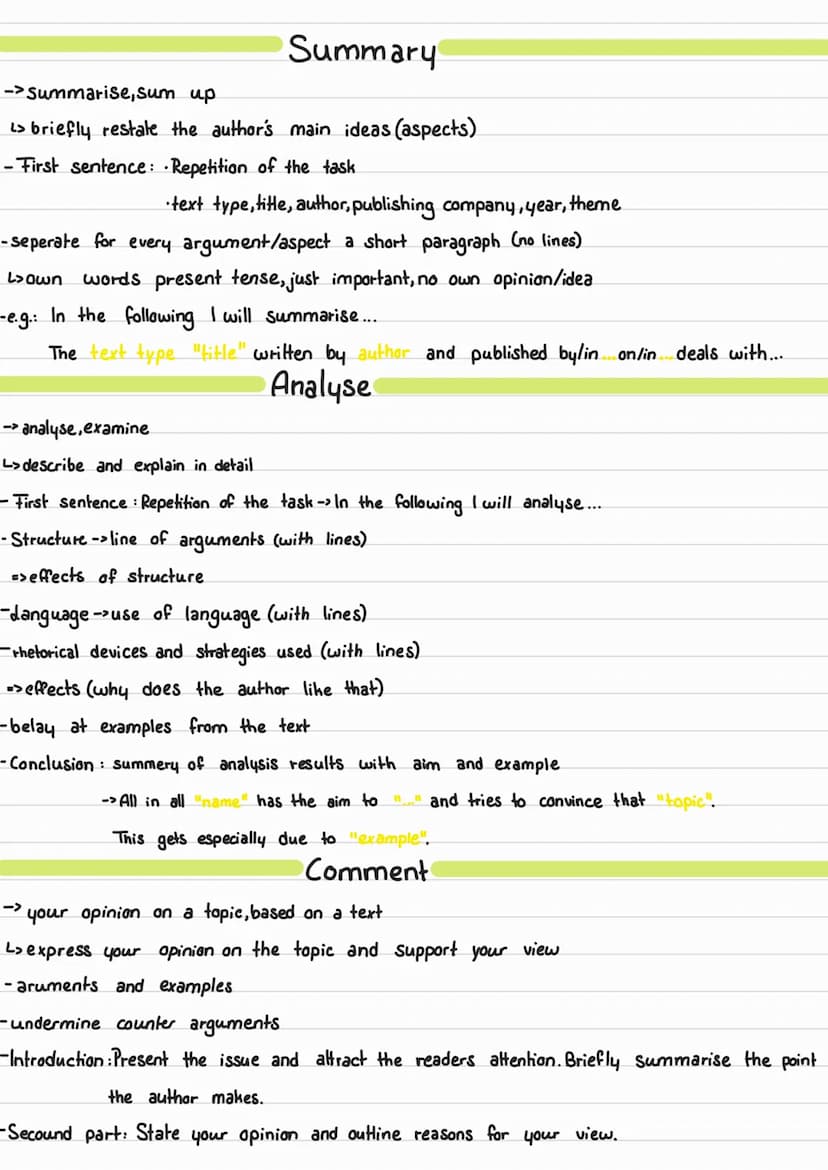 Summary
->summarise,sum up
↳briefly restate the author's main ideas(aspects)
-First sentence: ·Repetition of the task
·text type,title,author,publishing company,year,theme
-seperate for every argument/aspect a short paragraph (no lines)
↳own words present tense,just important,no own opinion/idea
-e.g.: In the following I will summarise...
The text type "title" written by author and published by/in...on/in... deals with...
Analyse
->analyse,examine
↳describe and explain in detail
-First sentence:Repetition of the task->In the following I will analyse...
-Structure->line of arguments (with lines)
=>effects of structure
-language->use of language (with lines)
-rhetorical devices and strategies used (with lines)
=>effects (why does the author like that)
-belay at examples from the text
-Conclusion: summery of analysis results with aim and example
->All in all "name" has the aim to "..." and tries to convince that "topic".
This gets especially due to "example".
Comment
->your opinion on a topic,based on a text
↳express your opinion on the topic and support your view
-aruments and examples
-undermine counter arguments
-Introduction:Present the issue and attract the readers attention.Briefly summarise the point
the author makes.
-Secound part: State your opinion and outline reasons for your view.